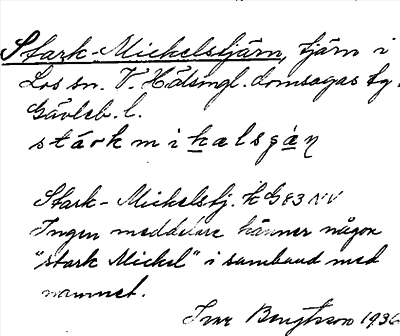 Stark-Mickelstjärn, tjärn i
Los sn. V. Hälsingl. domsagas tg.
Gävleb. l.
stárkmikalsgàn
Stark-Mickelstj. hG83NV
Ingen meddelare känner någon
"stark Mickel" i samband med
namnet.
Ivar Bengtsson 1936